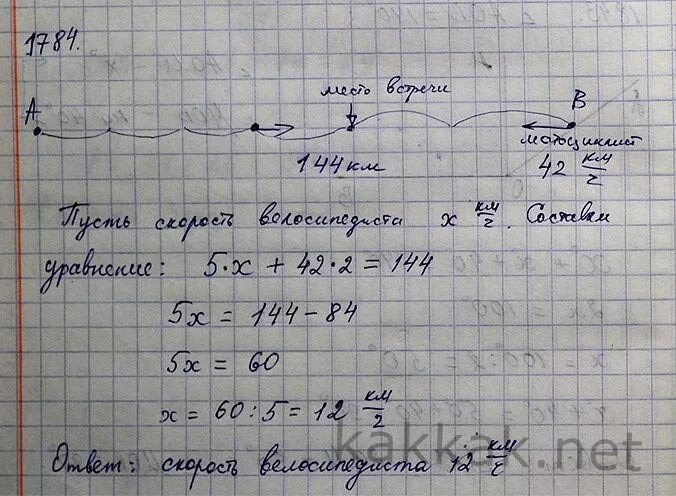 1784.
место встречи
A
B
мотоциклист
144 км
42 км/ч
Пусть скорость велосипедиста x км/ч. Составим
уравнение: 5·x + 42·2 = 144
5x = 144 - 84
5x = 60
x = 60 : 5 = 12 км/ч
Ответ: скорость велосипедиста 12 км/ч
kakkak.net